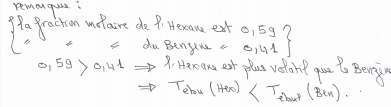 remarque :
{ la fraction molaire de l'Hexane est 0,59 }
{ " " " du Benzène " 0,41 }
0,59 > 0,41 ⇒ l'Hexane est plus volatil que le Benzène
⇒ Tébu (Hex) < Tébut (Ben) . . .